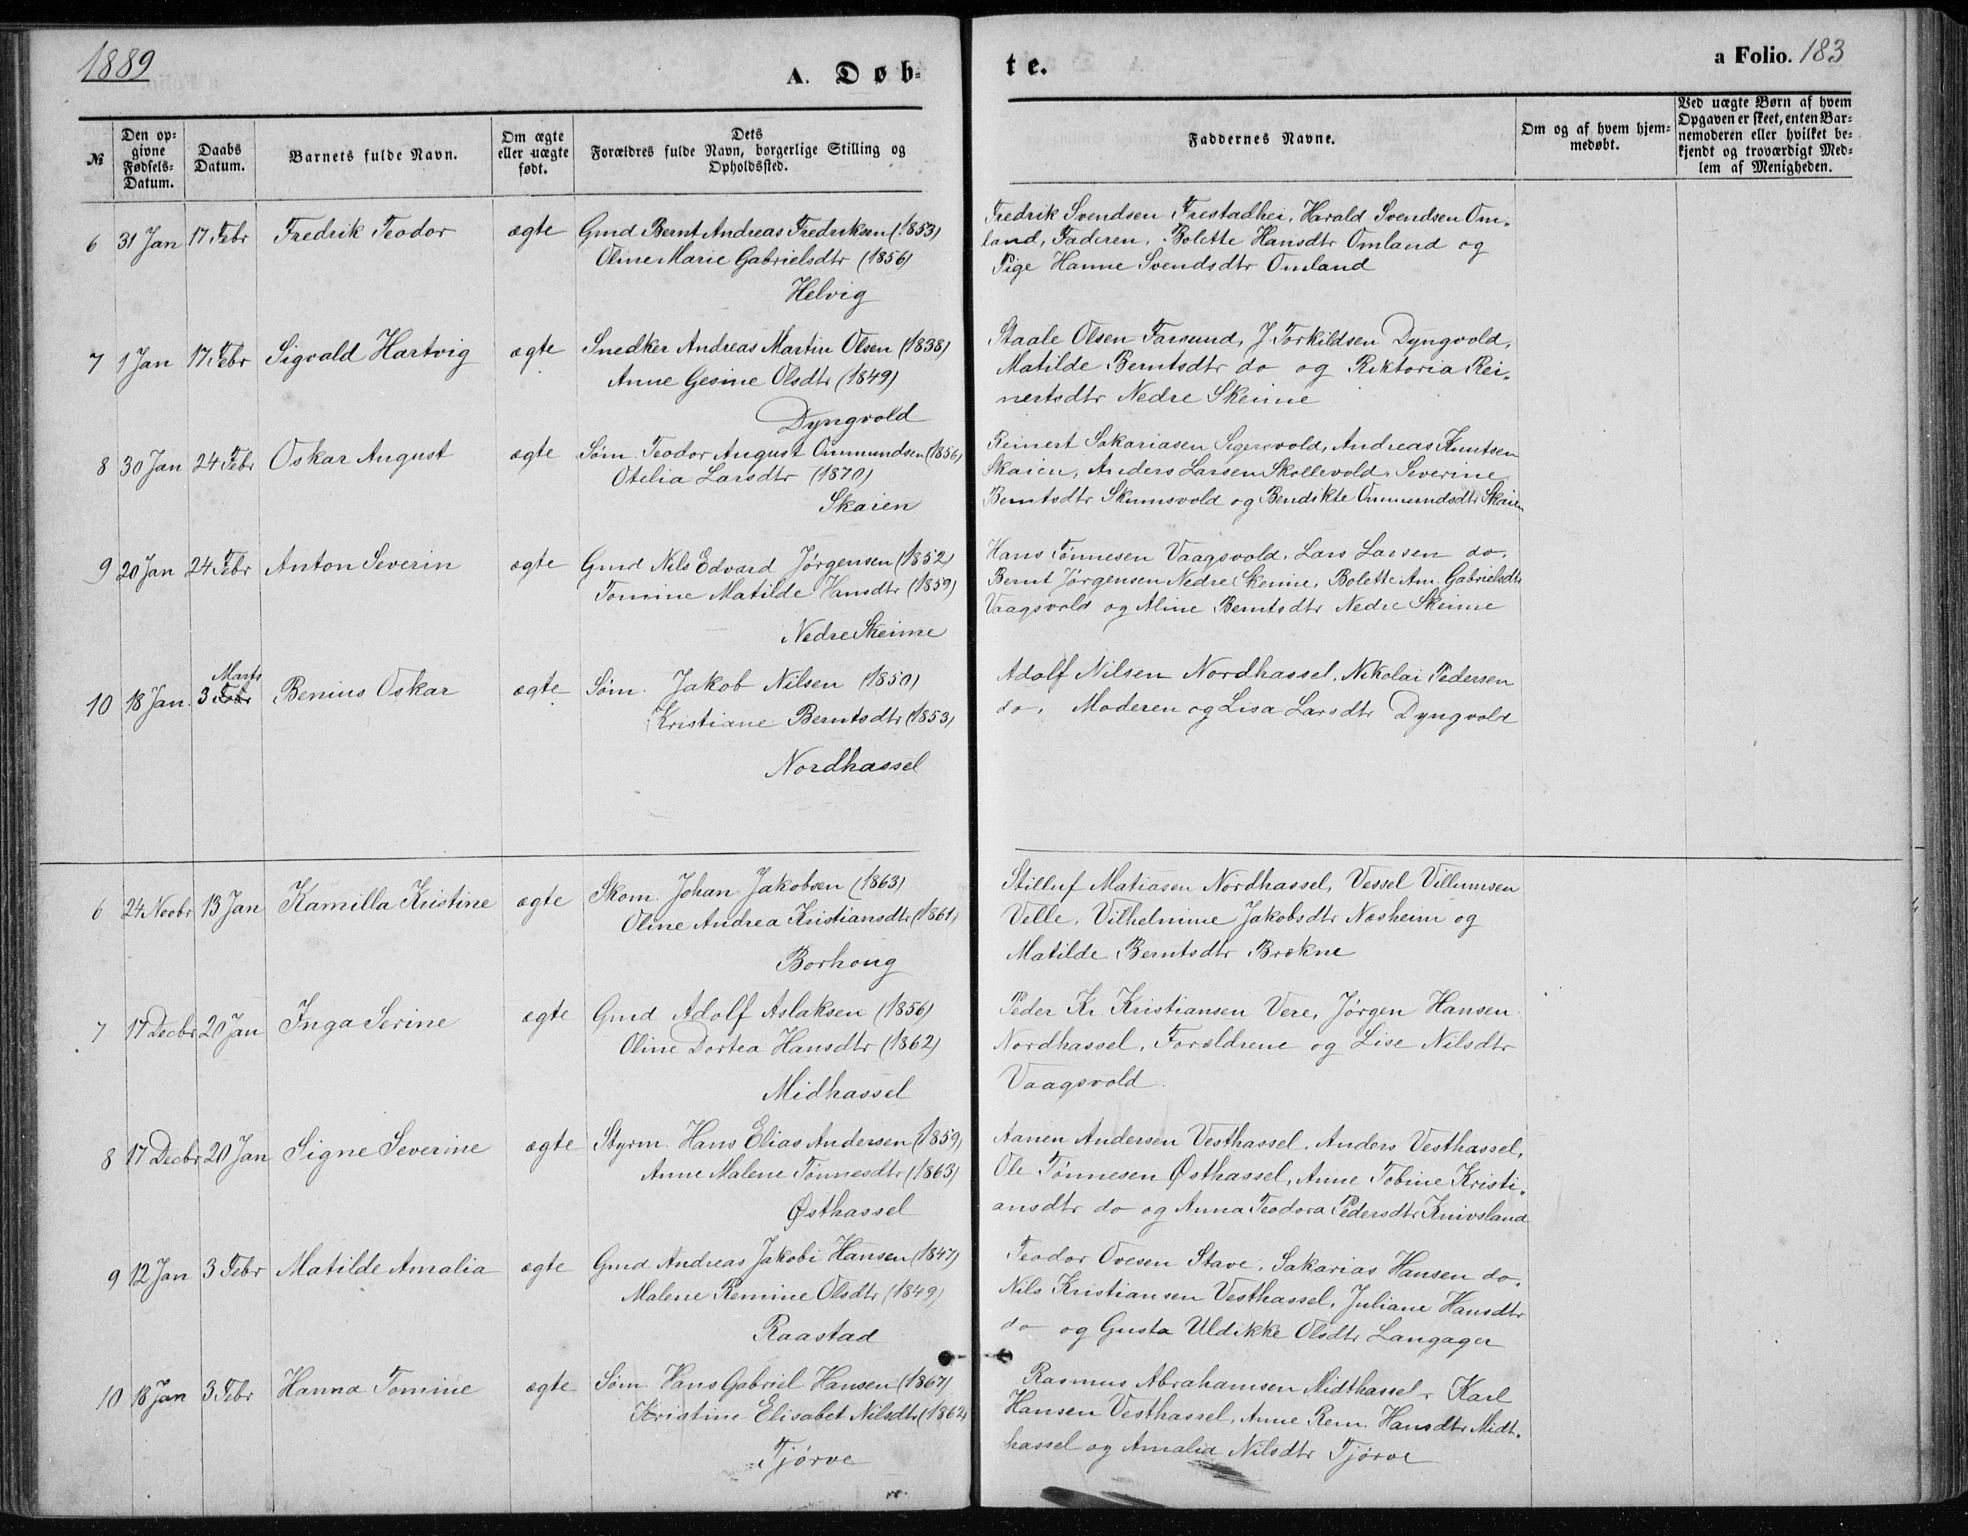 1889
A. Døb-
te.
a Folio. 183
№
Den op-
givne
Fødsels-
Datum.
Daabs
Datum.
Barnets fulde Navn.
Om ægte
eller uægte
født.
Dets
Forældres fulde Navn, borgerlige Stilling og
Opholdssted.
Faddernes Navne.
Om og af hvem hjem-
medøbt.
Ved uægte Børn af hvem
Opgaven er skeet, enten Bar-
nemoderen eller hvilket be-
kjendt og troværdigt Med-
lem af Menigheden.
6 31 Jan 17 Febr Fredrik Teodor ægte Gmd Bernt Andreas Fredriksen (1853)
Oline Marie Gabrielsdtr (1856)
Helvig
Fredrik Svendsen Frestadhei, Harald Svendsen Om-
land, Faderen, Bolette Hansdtr Omland og
Pige Hanne Svendsdtr Omland
7 1 Jan 17 Febr Sigvald Hartvig ægte Snedker Andreas Martin Olsen (1838)
Anne Gesine Olsdtr (1849)
Dyngvold
Staale Olsen Farsund, J. Torkildsen Dyngvold,
Matilde Berntsdtr do og Riktoria Rei-
nertsdtr Nedre Skeime
8 30 Jan 24 Febr Oskar August ægte Søm. Teodor August Ommundsen (1856)
Otelia Larsdtr (1870)
Skaien
Reinert Sakariasen Sigersvold, Andreas Knutsen
Skaien, Anders Larsen Skollevold, Severine
Berntsdtr Skumsvold og Bendikte Ommundsdtr Skaien
9 20 Jan 24 Febr Anton Severin ægte Gmd Nils Edvard Jørgensen (1852)
Tomine Matilde Hansdtr (1859)
Nedre Skeime
Hans Tønnesen Vaagsvold, Lars Larsen do,
Bernt Jørgensen Nedre Skeime, Bolette Am. Gabrielsdtr
Vaagsvold og Aline Berntsdtr Nedre Skeime
Marts
10 18 Jan. 3 Febr Benius Oskar ægte Søm. Jakob Nilsen (1850)
Kristiane Berntsdtr (1853)
Nordhassel
Adolf Nilsen Nordhassel, Nikolai Pedersen
do, Moderen og Lisa Larsdtr Dyngvold
6 24 Novbr 13 Jan Kamilla Kristine ægte Skom. Johan Jakobsen (1863)
Oline Andrea Kristiansdtr (1861)
Borhoug
Stilluf Matiasen Nordhassel, Vessel Villumsen
Velle, Vilhelmine Jakobsdtr Næsheim og
Matilde Berntsdtr Brekne
7 17 Decbr 20 Jan Inga Serine ægte Gmd Adolf Aslaksen (1856)
Oline Dortea Hansdtr (1862)
Midhassel
Peder Kr. Kristiansen Vere, Jørgen Hansen
Nordhassel, Forældrene og Lise Nilsdtr
Vaagsvold.
8 17 Decbr 20 Jan Signe Severine ægte Styrm. Hans Elias Andersen (1859)
Anne Malene Tønnesdtr (1863)
Østhassel
Aanen Andersen Vesthassel, Anders Vesthassel,
Ole Tønnesen Østhassel, Anne Tobine Kristi-
ansdtr do og Anna Teodora Pedersdtr Knivsland
9 12 Jan 3 Febr Matilde Amalia ægte Gmd Andreas Jakobi Hansen (1847)
Malene Remine Olsdtr (1849)
Raastad
Teodor Ovesen Stave, Sakarias Hansen do,
Nils Kristiansen Vesthassel, Juliane Hansdtr
do og Gusta Uldikke Olsdtr Langager
10 18 Jan 3 Febr Hanna Tomine ægte Søm. Hans Gabriel Hansen (1867)
Kristine Elisabet Nilsdtr (1862)
Tjørve
Rasmus Abrahamsen Midthassel, Karl
Hansen Vesthassel, Anne Rem. Hansdtr Midt-
hassel og Amalia Nilsdtr Tjørve